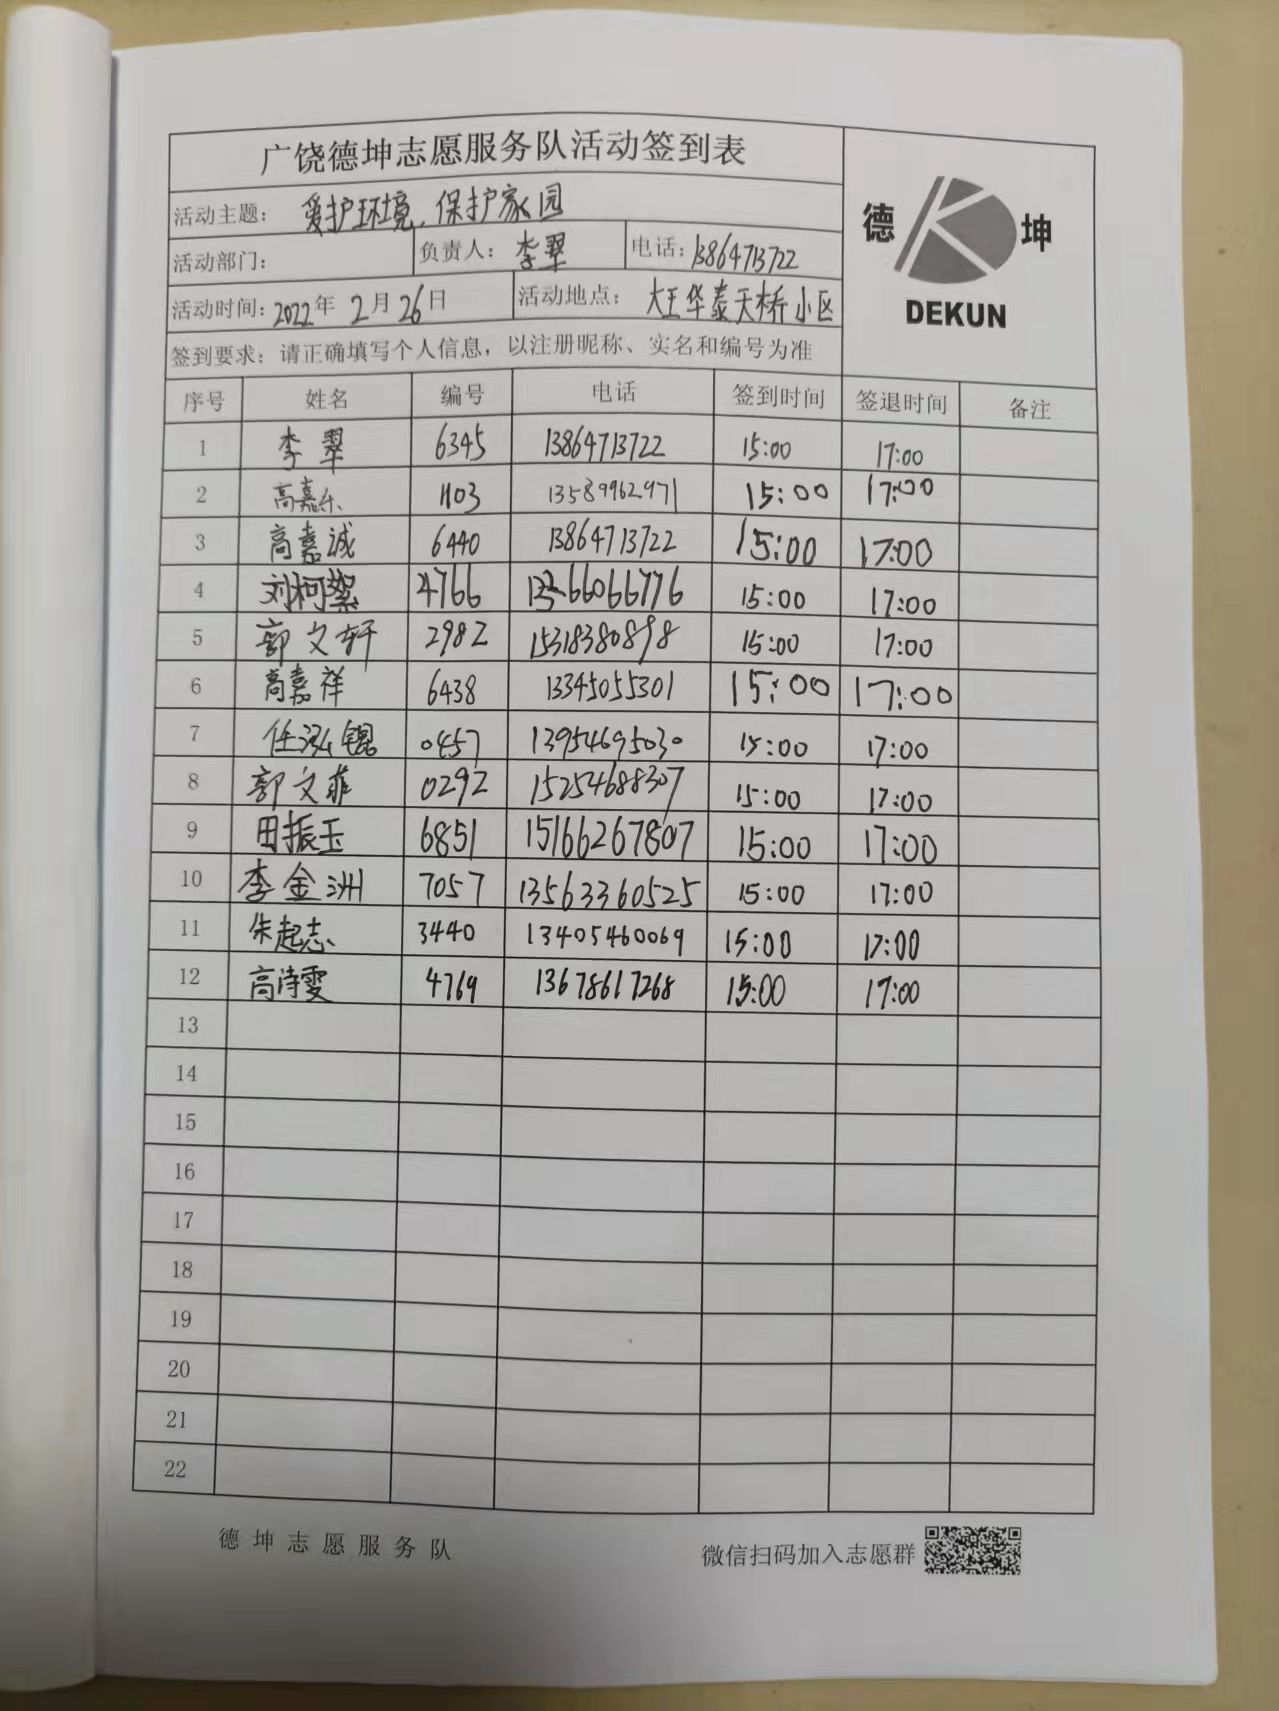 广饶德坤志愿服务队活动签到表
德 坤
DEKUN
活动主题: 爱护环境, 保护家园
活动部门: 负责人: 李翠 电话: 13864713722
活动时间: 2022年 2月26日 活动地点: 大王华泰天桥小区
签到要求: 请正确填写个人信息, 以注册昵称、实名和编号为准
序号 姓名 编号 电话 签到时间 签退时间 备注
1 李翠 6345 13864713722 15:00 17:00
2 高嘉乐 1103 13589962971 15:00 17:00
3 高嘉诚 6440 13864713722 15:00 17:00
4 刘柯絮 4766 15:00 17:00
5 郭文轩 2982 15318380898 15:00 17:00
6 高嘉祥 6438 13345055301 15:00 17:00
7 任泓锟 0457 13954695030 15:00 17:00
8 郭文菲 0292 15254688307 15:00 17:00
9 田振玉 6851 15166267807 15:00 17:00
10 李金洲 7057 13563360525 15:00 17:00
11 朱起志 3440 13405460069 15:00 17:00
12 高诗雯 4769 13678617268 15:00 17:00
13
14
15
16
17
18
19
20
21
22
德坤志愿服务队 微信扫码加入志愿群